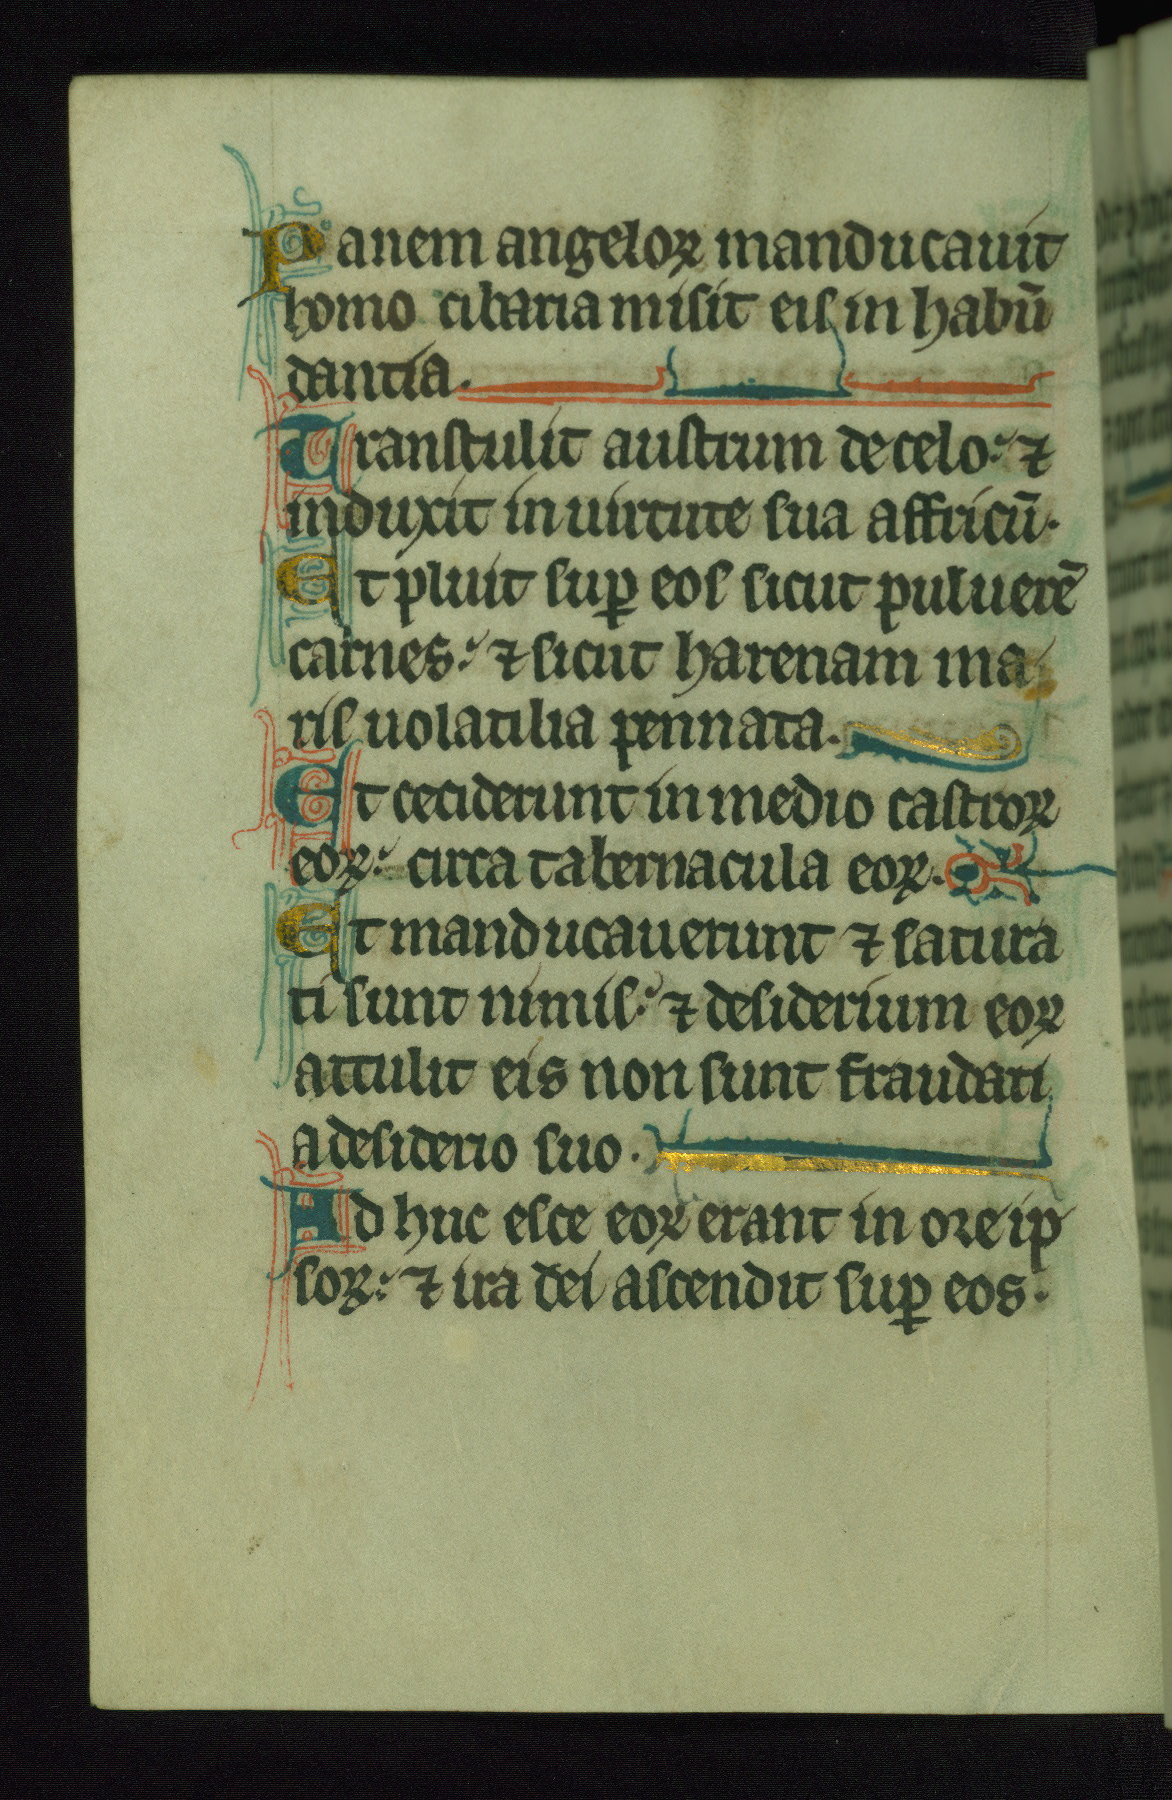 Panem angeloꝝ manducauit
homo cibaria misit eis in habū
dantia.
Transtulit austrum de celo: ⁊
induxit in uirtute sua affricū.
Et pluit suꝑ eos sicut puluerē
carnes: ⁊ sicut harenam ma
ris uolatilia pennata.
Et ceciderunt in medio castroꝝ
eoꝝ: circa tabernacula eoꝝ.
Et manducauerunt ⁊ satura
ti sunt nimis: ⁊ desiderium eoꝝ
attulit eis non sunt fraudati
a desiderio suo.
Ad huc esce eoꝝ erant in ore ip
soꝝ: ⁊ ira dei ascendit suꝑ eos.